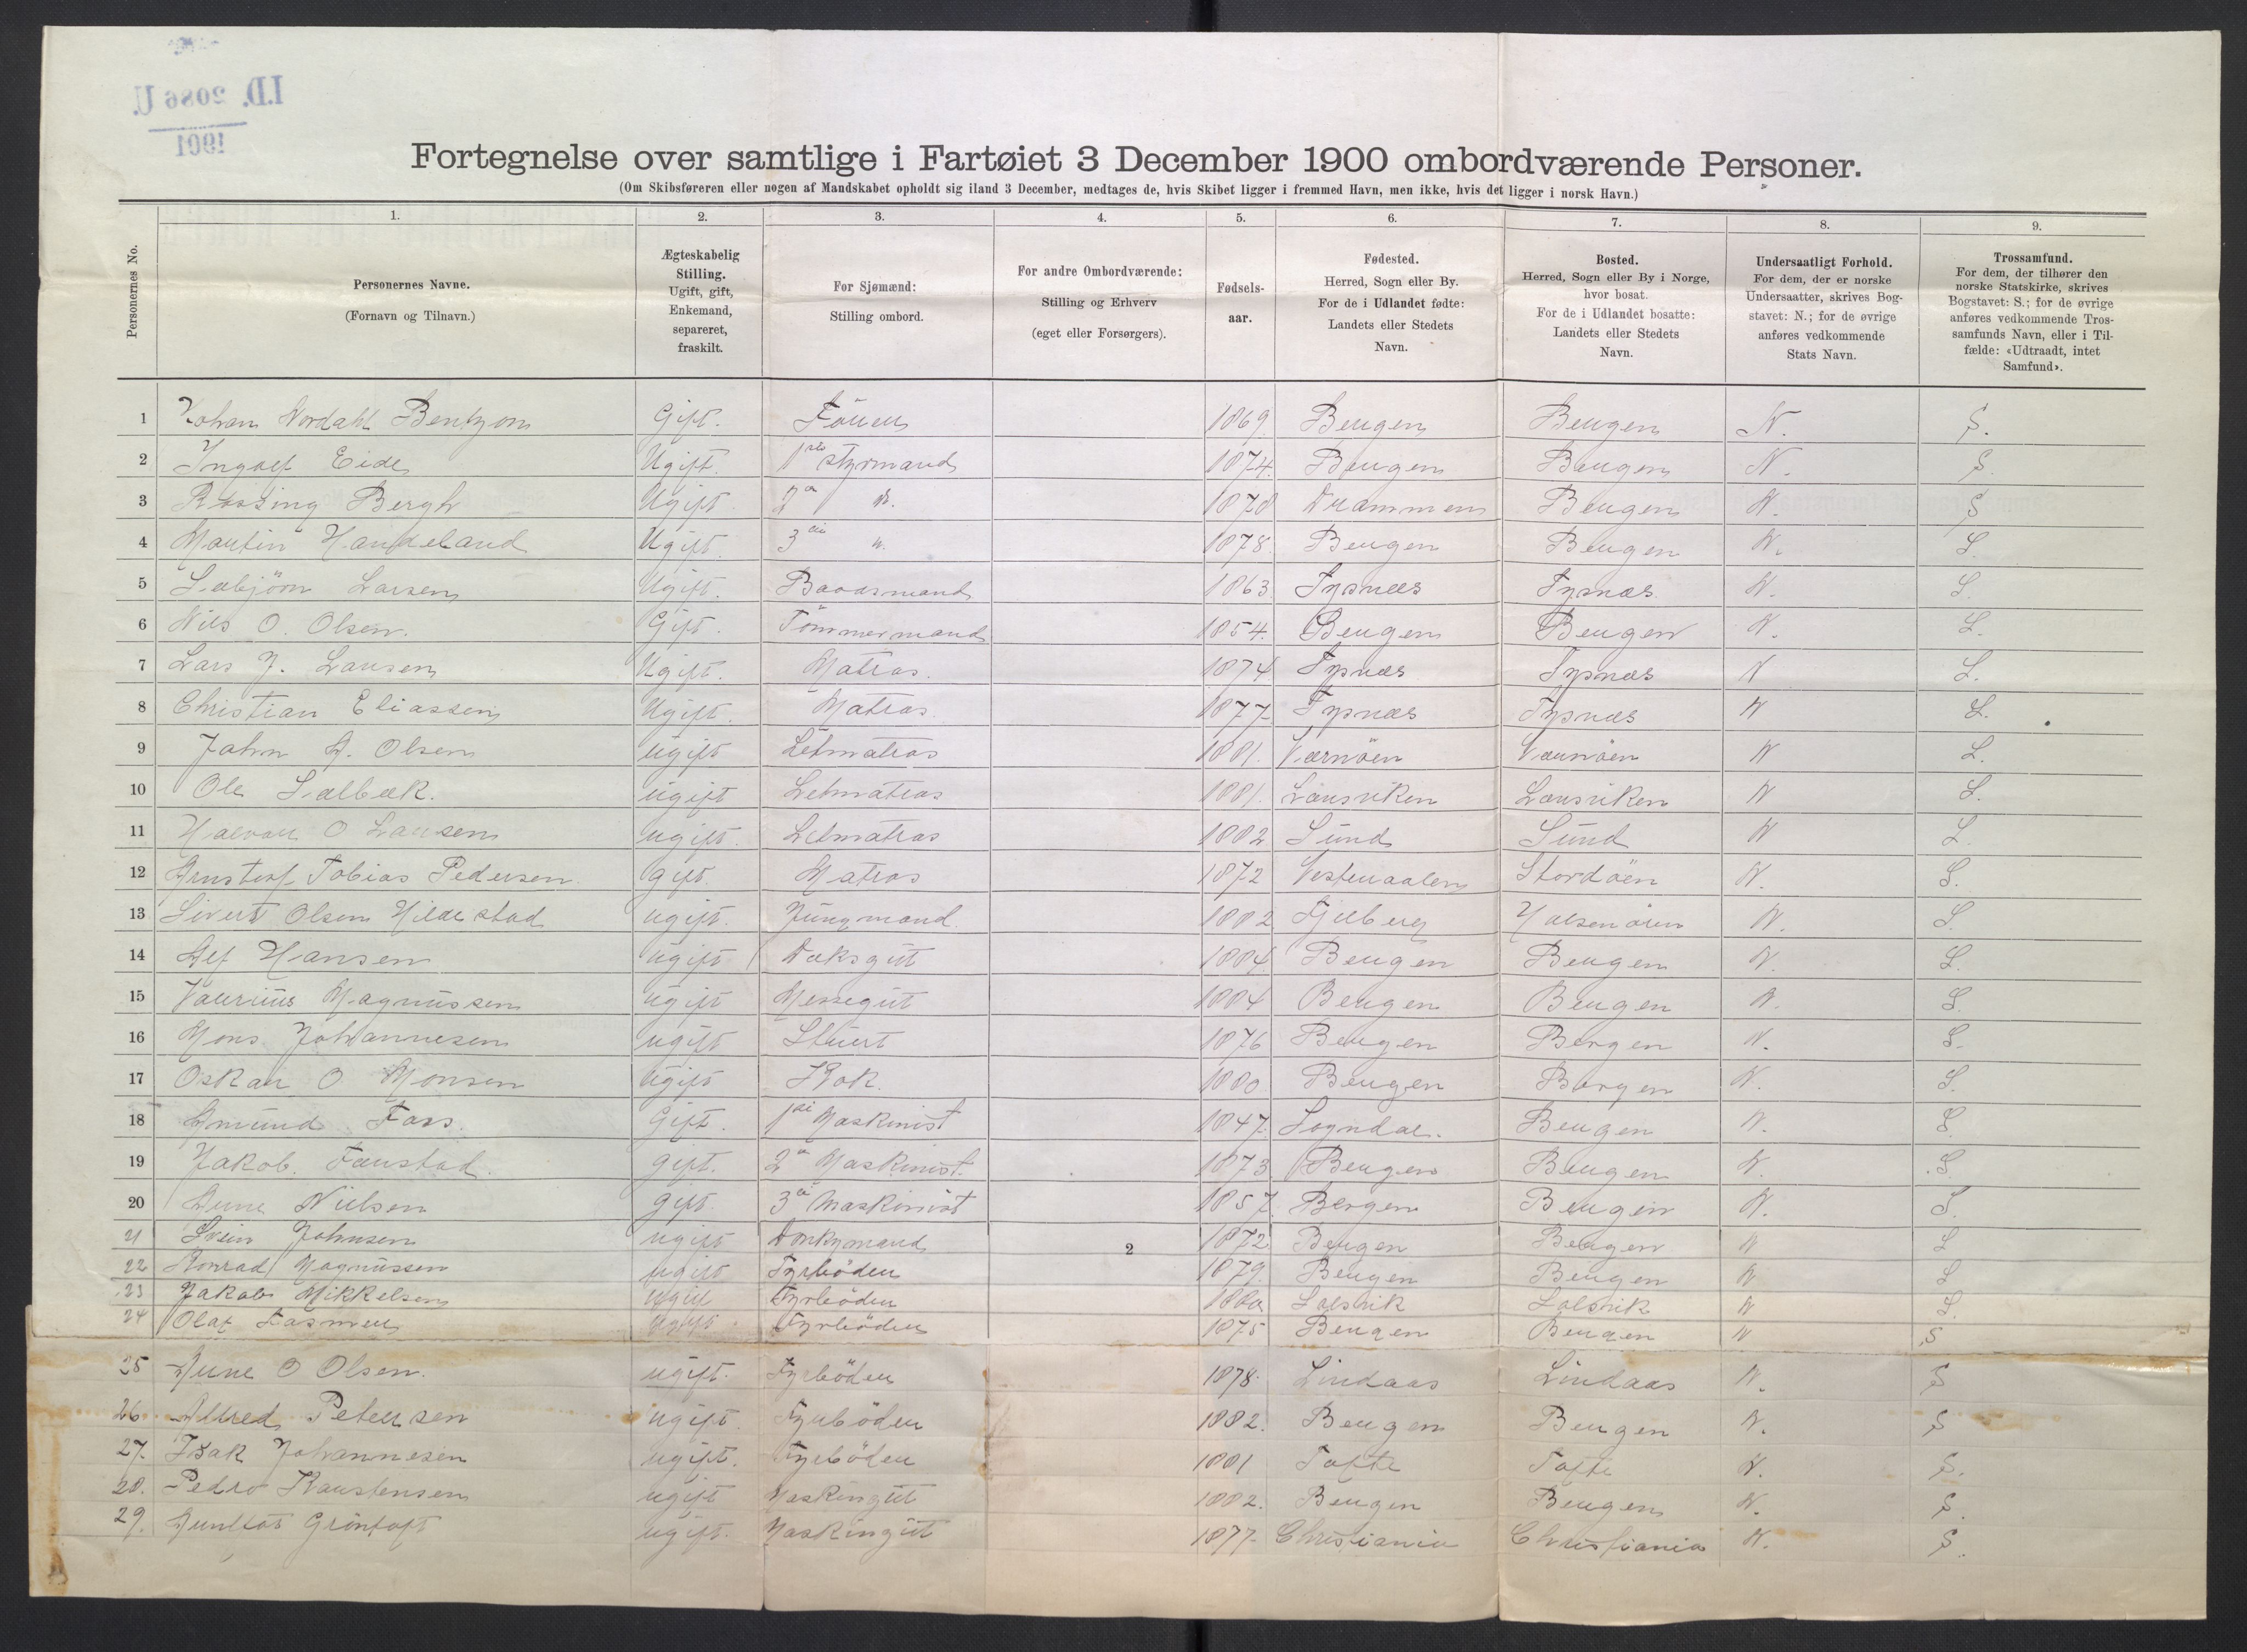 I.D. 2086 U.
1901
Fortegnelse over samtlige i Fartøiet 3 December 1900 ombordværende Personer.
(Om Skibsføreren eller nogen af Mandskabet opholdt sig iland 3 December, medtages de, hvis Skibet ligger i fremmed Havn, men ikke, hvis det ligger i norsk Havn.)
Personernes No.
1. 2. 3. 4. 5. 6. 7. 8. 9.
Personernes Navne.
(Fornavn og Tilnavn.)
Ægteskabelig
Stilling.
Ugift, gift,
Enkemand,
separeret,
fraskilt.
For Sjømænd:
Stilling ombord.
For andre Ombordværende:
Stilling og Erhverv
(eget eller Forsørgers).
Fødsels-
aar.
Fødested.
Herred, Sogn eller By.
For de i Udlandet fødte:
Landets eller Stedets
Navn.
Bosted.
Herred, Sogn eller By i Norge,
hvor bosat.
For de i Udlandet bosatte:
Landets eller Stedets
Navn.
Undersaatligt Forhold.
For dem, der er norske
Undersaatter, skrives Bog-
stavet: N.; for de øvrige
anføres vedkommende
Stats Navn.
Trossamfund.
For dem, der tilhører den
norske Statskirke, skrives
Bogstavet: S.; for de øvrige
anføres vedkommende Tros-
samfunds Navn, eller i Til-
fælde: «Udtraadt, intet
Samfund».
1 Johan Nordahl Bentzon Gift. Förer 1869 Bergen Bergen N. S.
2 Ingolf Eide Ugift. 1ste Styrmand 1874. Bergen Bergen N. S.
3 Bergh Ugift 2 1878 Drammen Bergen N. S
4 Martin Handeland Ugift. 3 1878. Bergen Bergen N. S.
5 Sæbjörn Larsen Ugift. Baadsmand 1863 Tysnæs Tysnæs N. S.
6 Nils O. Olsen. Gift. Tömmermand 1854. Bergen Bergen N. S.
7 Lars J. Larsen Ugift. Matros. 1874 Tysnæs Tysnæs N S.
8 Christian Eliassen Ugift. Matros. 1877 Tysnæs Tysnæs N S.
9 John A. Olsen ugift Letmatros 1881. Værnöen Værnöen N S.
10 Ole Sælbæk. ugift Letmatros 1881. Lansviken Lansviken N S.
11 Halvor O Larsen ugift. Letmatros 1882 Sund Sund N S.
12 Tobias Pedersen. gift. Matros 1872 Vesteraalen Stordöen N. S.
13 Sivert Olsen Hildestad ugift. Jungmand. 1882 Fjelberg Halsenören N. S.
14 Alf Hansen ugift Dæksgut 1884 Bergen Bergen N. S.
15 Magnussen ugift Messegut 1884 Bergen Bergen N. S.
16 Mons Johannesen ugift Stuert 1876 Bergen Bergen N. S.
17 Oskar O Monsen ugift Kok. 1880 Bergen Bergen N. S.
18 Amund Fars. Gift. 1 Maskinist 1847. Sogndal. Bergen N. S.
19 Jakob. Farstad. gift. 2 Maskinist. 1873 Bergen Bergen N. S.
20 Arne Nielsen gift. 3 Maskinist 1857 Bergen Bergen N. S.
21 Svein Johnsen ugift Donkymand 2 1872 Bergen Bergen N S
22 Konrad Magnussen ugift Fyrböder 1879. Bergen Bergen N S
23 Jakob Mikkelsen ugift Fyrböder 1880 Salsvik Salsvik N S.
24 Olaf Rasmus ugift Fyrböder 1875 Bergen Bergen N S
25 Arne O Olsen. ugift. Fyrböder 1878. Lindaas Lindaas N. S
26 Alfred Petersen ugift. Fyrböder 1882. Bergen Bergen N. S
27. Isak Johannesen ugift. Fyrböder 1881 Tofte Tofte N. S.
28. Pedro Karstensen ugift Maskingut 1882. Bergen Bergen N. S.
29. Gröntoft ugift. Maskingut 1877 Christiania Christiania N. S.